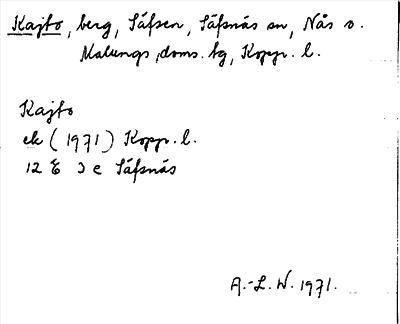 Kajto, berg, Säfsen, Säfsnäs sn, Nås o.
Malungs doms. tg, Kopp. l.
Kajto
ek (1971) Kopp. l.
12 E 3 e Säfsnäs
A.-L. W. 1971.